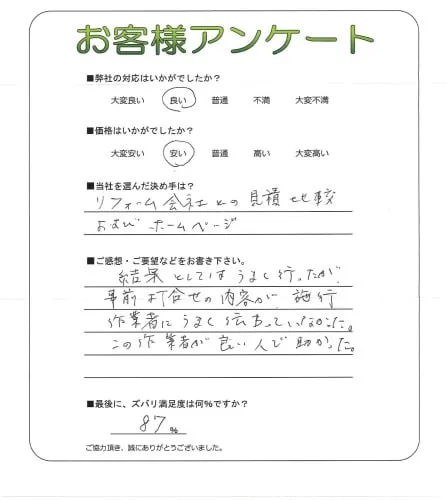 お客様アンケート
■弊社の対応はいかがでしたか？
大変良い 良い 普通 不満 大変不満
■価格はいかがでしたか？
大変安い 安い 普通 高い 大変高い
■当社を選んだ決め手は？
リフォーム会社との見積比較
およびホームページ
■ご感想・ご要望などをお書き下さい。
結果としてはうまく行ったが、
事前打合せの内容が、施行
作業者にうまく伝わっていなかった。
この作業者が良い人で助かった。
■最後に、ズバリ満足度は何%ですか？
87%
ご協力頂き、誠にありがとうございました。